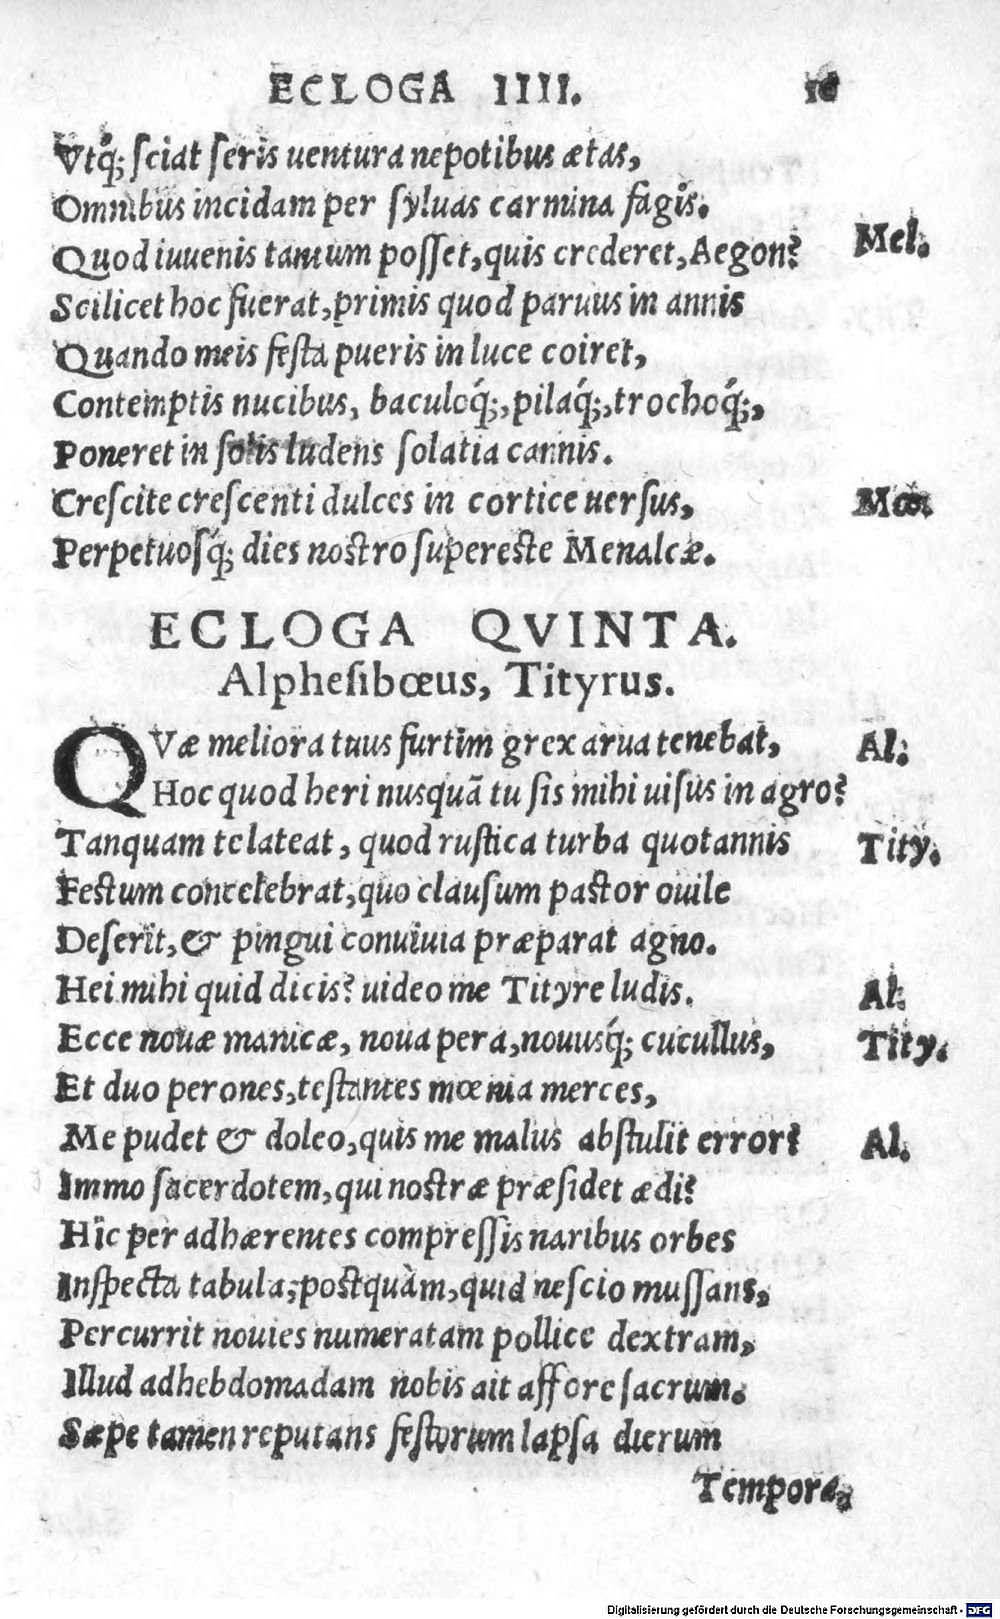 ECLOGA IIII. 16
Vtq́; sciat seris uentura nepotibus ætas,
Omnibus incidam per syluas carmina fagis.
Quod iuuenis tantum posset, quis crederet, Aegon? Mel.
Scilicet hoc fuerat, primis quod paruus in annis
Quando meis festa pueris in luce coiret,
Contemptis nucibus, baculoq́;, pilaq́;, trochoq́;,
Poneret in solis ludens solatia cannis.
Crescite crescenti dulces in cortice uersus, Mœ.
Perpetuosq́; dies nostro supereste Menalcæ.
ECLOGA QVINTA.
Alphesibœus, Tityrus.
QVæ meliora tuus furtim grex arua tenebat, Al.
Hoc quod heri nusquā tu sis mihi uisus in agro?
Tanquam te lateat, quod rustica turba quotannis Tity.
Festum concelebrat, quo clausum pastor ouile
Deserit, & pingui conuiuia præparat agno.
Hei mihi quid dicis? uideo me Tityre ludis. Al.
Ecce nouæ manicæ, noua pera, nouusq́; cucullus, Tity.
Et duo perones, testantes mœnia merces,
Me pudet & doleo, quis me malus abstulit error? Al.
Immo sacerdotem, qui nostræ præsidet ædi?
Hic per adhærentes compressis naribus orbes
Inspecta tabula, postquàm, quid nescio mussans,
Percurrit nouies numeratam pollice dextram,
Illud ad hebdomadam nobis ait affore sacrum.
Sæpe tamen reputans festorum lapsa dierum
Tempora,
Digitalisierung gefördert durch die Deutsche Forschungsgemeinschaft - DFG